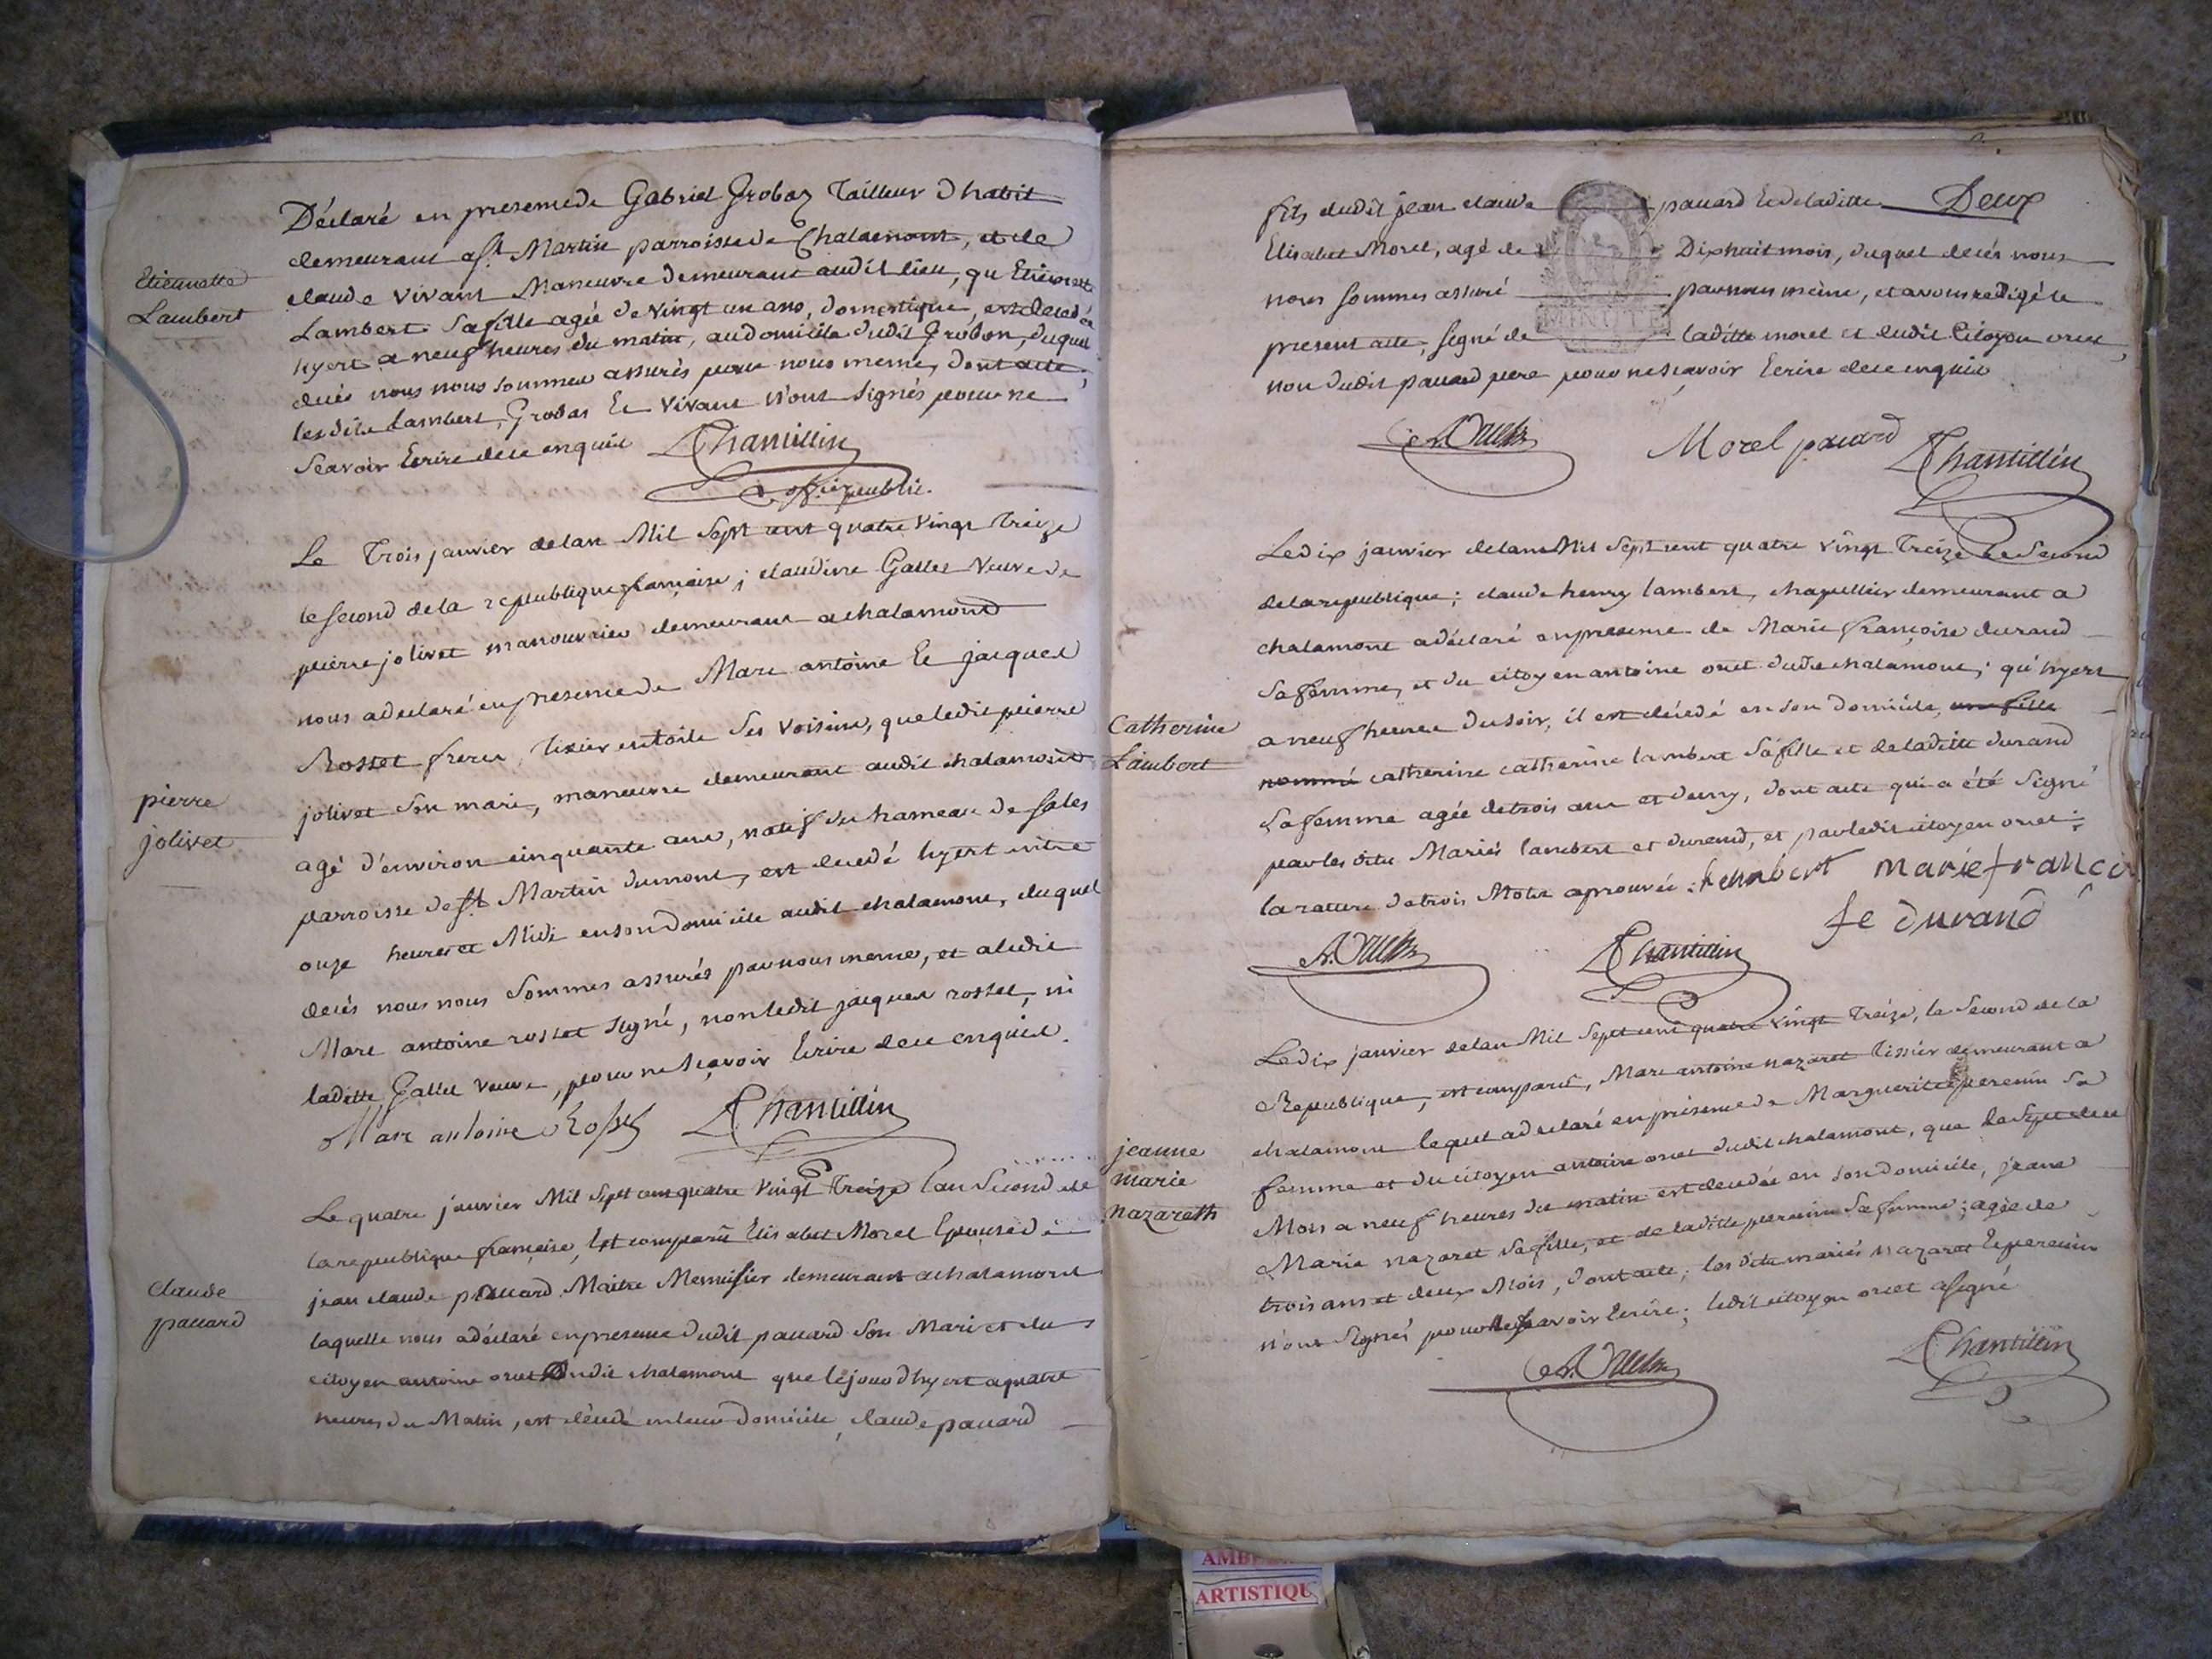 Déclaré en presence de Gabriel Grobaz Tailleur dhabit
demeurant a St. Martin parroisse de Chalamont, et de
claude vivant Maneuvre demeurant audit lieu, qu Etiennette
Lambert Sa fille agée de vingt un ans, domestique, est decedée
hyert a neuf heures du matin, au domicile dudit Grobon, duquel
decés nous nous sommes assurés pour nous meme, dont acte,
lesdits Lambert, Grobas Et vivant n'ont signés pour ne
Scavoir Ecrire de ce enquis Chantillin
off. public.
Etiennette
Lambert
Le Trois janvier de lan Mil Sept cent quatre vingt Treize
le second de la republique francaise ; claudine Galles Veuve de
pierre jolivet manouvrier demeurant a chalamont
nous a declaré en presence de Marc antoine Et jacques
Rosset freres, Tixier en toile Ses voisins, que ledit pierre
jolivet son mari, maneuvre demeurant audit chalamont
agé d'environ cinquante ans, natif du hameau de sales
parroisse de St. Martin dumont, est decedé hyert entre
onze heures et Midi en son domicile audit chalamont, duquel
decés nous nous sommes assurés par nous meme, et a ledit
Marc antoine rosset signé, non ledit jacques rosset, ni
laditte Galles veuve, pour ne sçavoir Ecrire de ce enquis.
Marc antoine Rosset Chantillin
pierre
jolivet
Le quatre janvier Mil Sept cent quatre vingt Treize lan Second de
la republique francaise, Est comparu Elisabet Morel Epouse de
jean claude pauard Maitre Menuisier demeurant a chalamont
laquelle nous a déclaré en presence dudit pauard Son Mari et du
citoyen antoine oruet dudit chalamont que le jour dhyert a quatre
heures du Matin, est décedé en leur domicile, claude pauard
claude
pauard
Deux
fils dudit jean claude pauard Et de laditte
Elisabet Morel, agé de Dixhuit mois, duquel decés nous
nous sommes assuré par nous même, et avons redigé le
present acte, signé de laditte morel et dudit Citoyen oruet,
non dudit pauard pere pour ne sçavoir Ecrire de ce enquis
MINUTE
Morel pauard Chantillin
Le dix janvier de lan Mil Sept cent quatre vingt Treize le Second
de la republique ; claude henry lambert, chapellier demeurant a
chalamont a déclaré en presence de Marie françoise durand
Sa femme, et du citoyen antoine oruet dudit chalamont ; qu'hyert
a neuf heures du soir, il est décedé en son domicile, une fille
nommé catherine catherine lambert Sa fille et de laditte durand
Sa femme agée de trois ans et demy, dont acte qui a été Signé
par les dits Mariés lambert et durand, et par ledit citoyen oruet ;
la rature de trois Mots aprouvée. lambert marie francoi
se durand
Chantillin
Catherine
Lambert
Le dix janvier de lan Mil Sept cent quatre vingt Treize, le Second de la
Republique, est comparu, Marc antoine nazaret Tissier demeurant a
chalamont lequel a declaré en présence de Marguerite perenin Sa
femme et du citoyen antoine oruet dudit chalamont, que le Sept de ce
Mois a neuf heures du matin est decedée en son domicile, jeane
Marie nazaret Sa fille, et de laditte perenin Sa femme ; agée de
trois ans et deux Mois, dont acte ; les dits mariés nazaret Et perenin
n'ont signés pour ne sçavoir Ecrire ; ledit citoyen oruet a signé
Chantillin
jeanne
marie
nazareth
ARTISTIQU